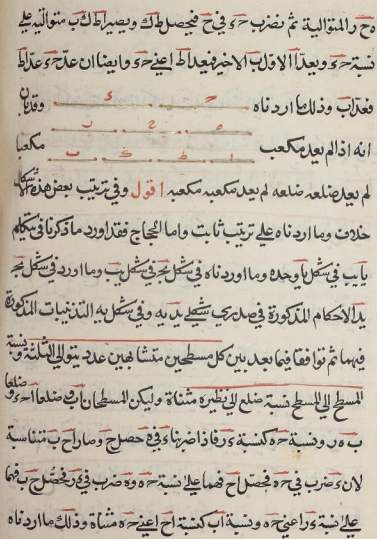 ه ح ر المتوالية ثم نضرب ح ء في ح فيحصل ط ك ويصير ا ط ك ب متوالية على
نسبة ح ء ويعد ا الاول ب الاخير فيعد ا ط اعنى ح ء وايضا ان عد ح ء عد ا ط
فعد ا ب وذلك ما اردناه ح ء وقد بان
ه ح ر
انه اذا لم يعد مكعب مكعبا
ا ط ك ب
لم يعد ضلعه ضلعه لم يعد مكعبه مكعبه اقول وفي ترتيب بعض هذه الاشكال
خلاف وما اردناه على ترتيب ثابت واما الحجاج فقد اورد ما ذكرنا في شكلي
يا يب في شكل يا وحده وما اوردناه في شكل يج في شكل يب وما اورد في شكل يج
يد الاحكام المذكورة في صدري شكلي يد يه وفي شكل يه التذنيبات المذكورة
فيهما ثم توافقا فيما بعد بين كل مسطحين متشابهين عدد يتوالى الثلثة ونسبة
المسطح الى المسطح نسبة ضلع الى نظيره مثناة وليكن المسطحان ا ب وضلعا ا ح ء وضلعا
ب ه ر ونسبة ح ه كنسبة ء ر فاذا ضربنا ء في ه حصل ح وصار ا ح ب متناسبة
لان ء ضرب في ح ه فحصل ا ح فهما على نسبة ح ه و ه ضرب في ء ر فحصل ح ب فهما
على نسبة ء ر اعنى ح ه ونسبة ا ب كنسبة ا ح اعنى ح ه مثناة وذلك ما اردناه